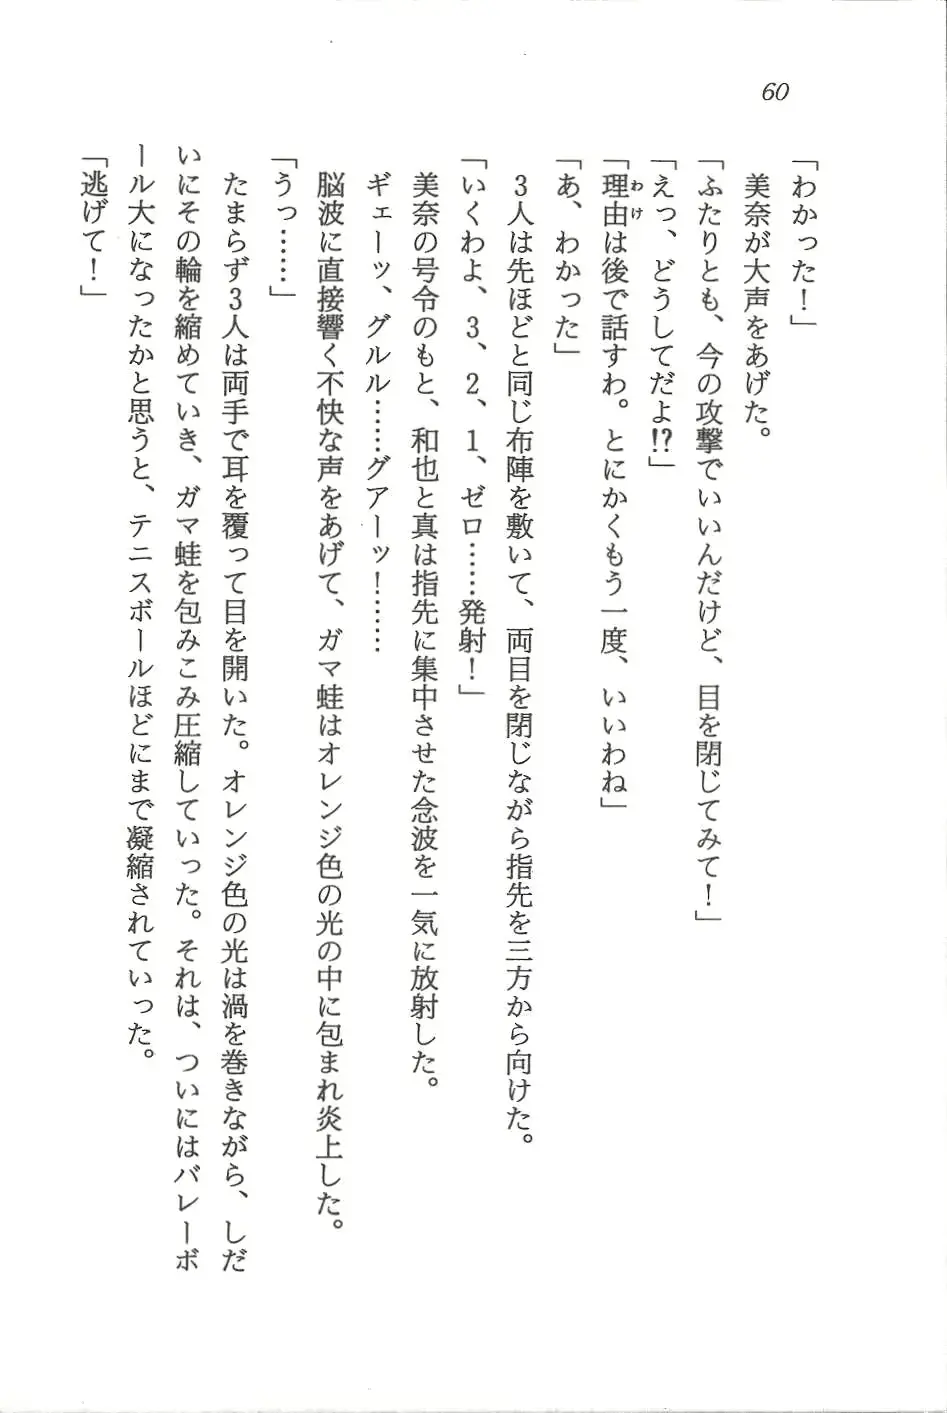 60
「わかった！」
　美奈が大声をあげた。
「ふたりとも、今の攻撃でいいんだけど、目を閉じてみて！」
「えっ、どうしてだよ!?」
「理由は後で話すわ。とにかくもう一度、いいわね」
わけ
「あ、わかった」
　3人は先ほどと同じ布陣を敷いて、両目を閉じながら指先を三方から向けた。
「いくわよ、3、2、1、ゼロ……発射！」
　美奈の号令のもと、和也と真は指先に集中させた念波を一気に放射した。
　ギェーッ、グルル……グアーッ！……
　脳波に直接響く不快な声をあげて、ガマ蛙はオレンジ色の光の中に包まれ炎上した。
「うっ……」
　たまらず3人は両手で耳を覆って目を開いた。オレンジ色の光は渦を巻きながら、しだ
いにその輪を縮めていき、ガマ蛙を包みこみ圧縮していった。それは、ついにはバレーボ
ール大になったかと思うと、テニスボールほどにまで凝縮されていった。
「逃げて！」